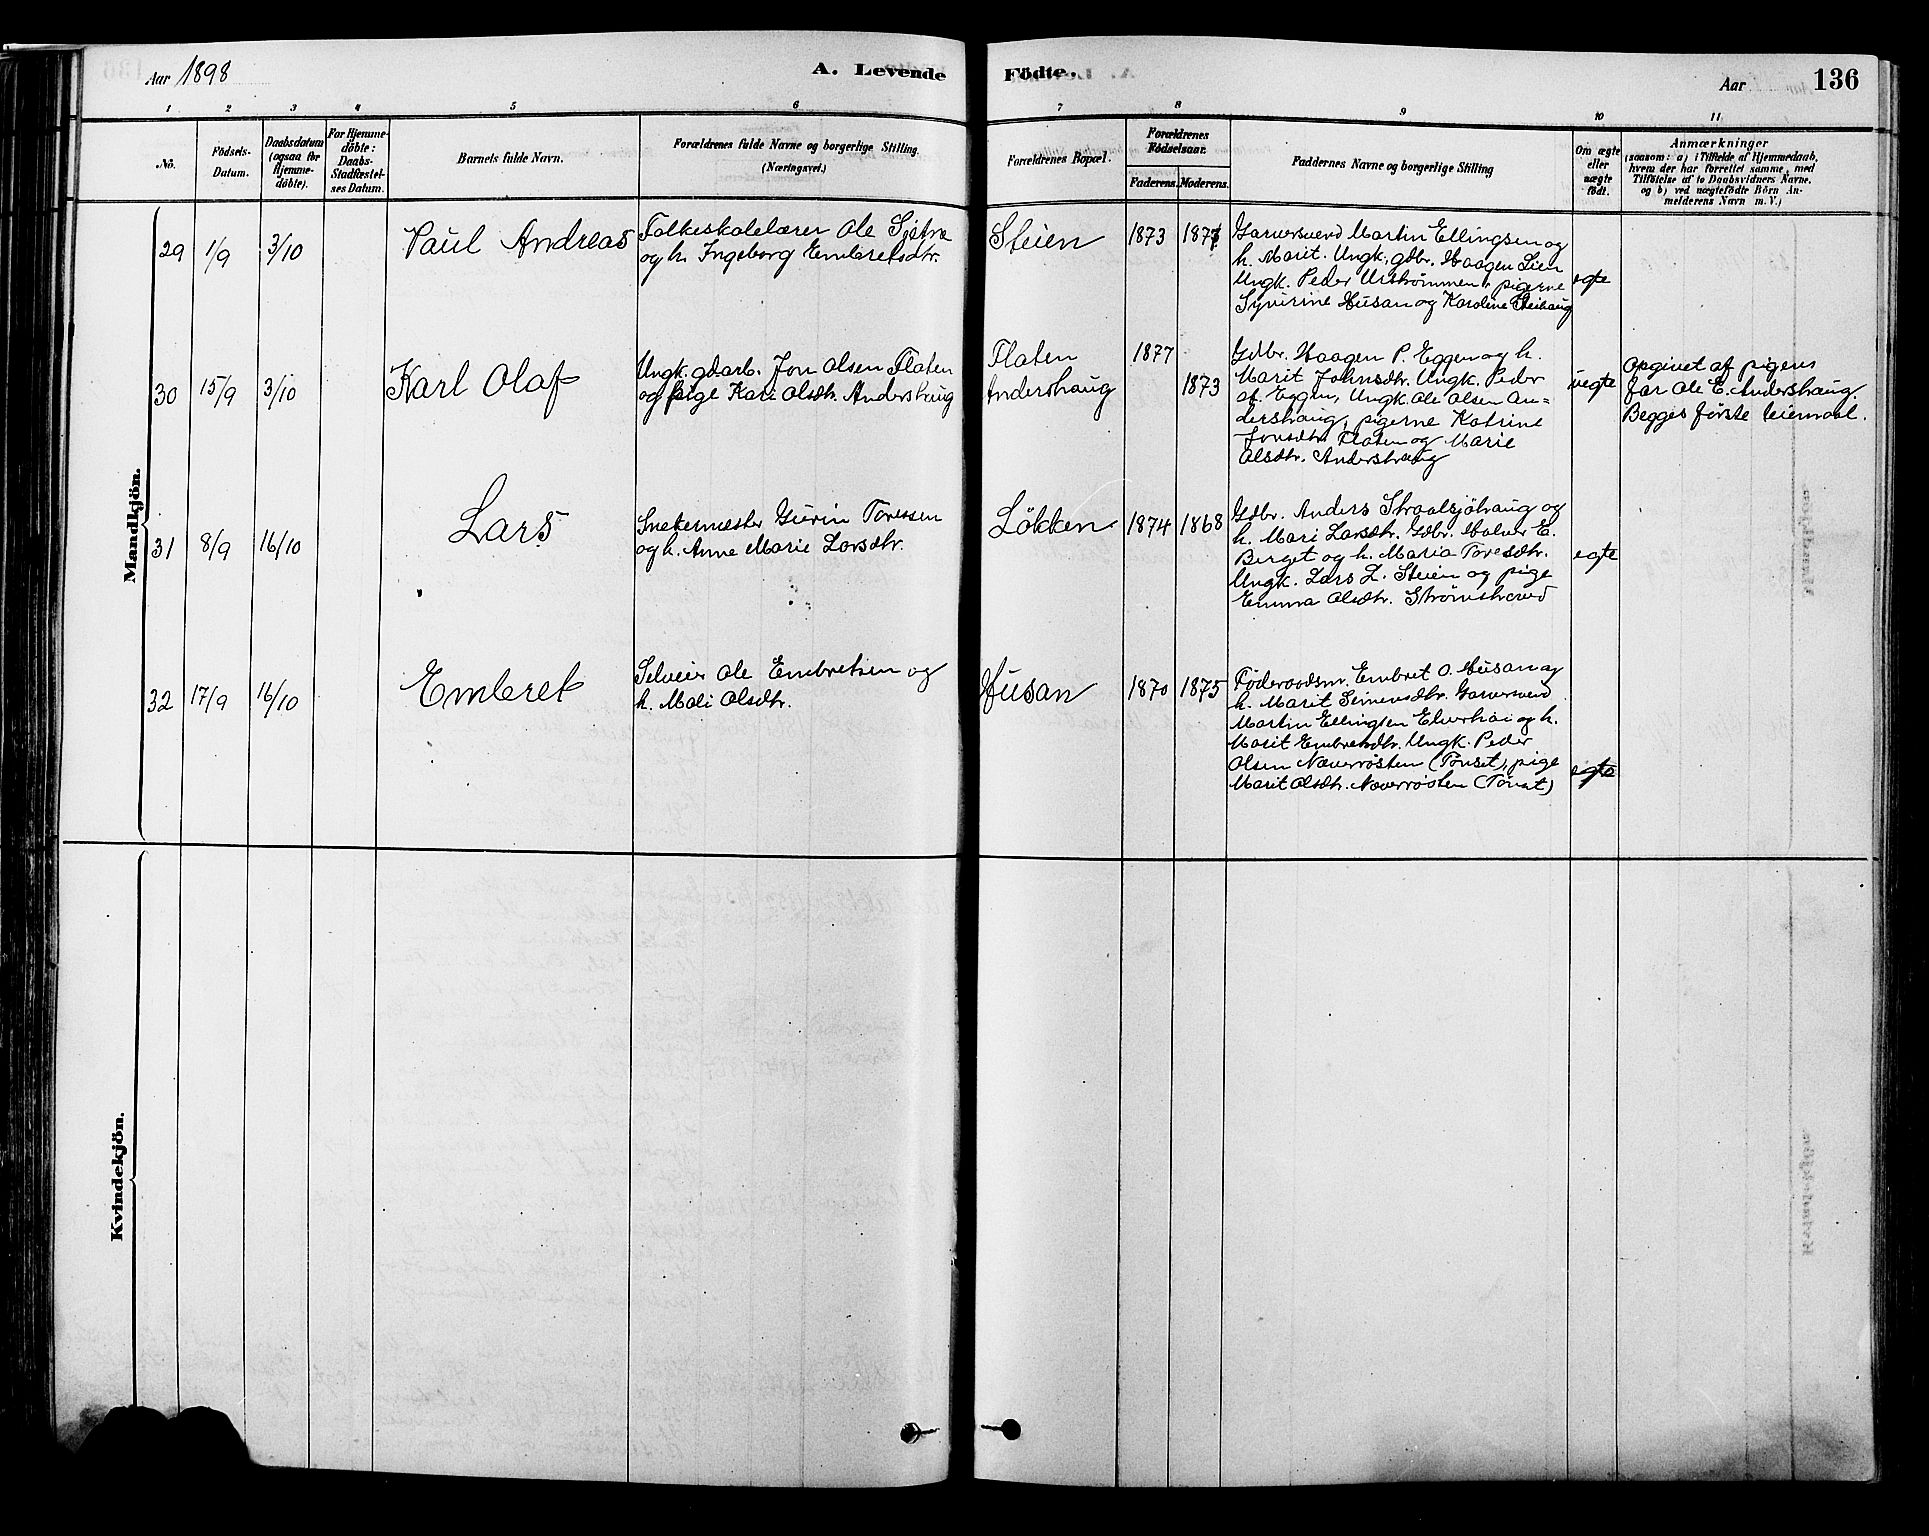 Aar 1898
A. Levende
Födte.
Aar
136
1 2 3 4 5 6 7 8 9 10 11
No.
Födsels-
Datum.
Daabsdatum
(ogsaa for
Hjemme-
döbte).
For Hjemme-
döbte:
Daabs-
Stadfæstel-
ses Datum.
Barnets fulde Navn.
Forældrenes fulde Navne og borgerlige Stilling.
(Næringsvei.)
Forældrenes Bopæl.
Forældrenes
Födselsaar.
Faderens. Moderens.
Faddernes Navne og borgerlige Stilling
Om ægte
eller
uægte
födt.
Anmærkninger
(saasom: a) i Tilfælde af Hjemmedaab,
hvem der har forrettet samme, med
Tilföielse af to Daabsvidners Navne,
og b) ved uægtefödte Börn An-
melderens Navn m. V.)
Mandkjön.
29 1/9 3/10
Paul Andreas
Folkeskolelærer Ole
og h. Ingeborg Embretsdtr.
Steien
1873 1871
Garversvend Martin Ellingsen og
h. Marit. Ungk. gdbr. Haagen Lien
Ungk. Peder Urstrømmen, pigerne
Syverine Husan og Karoline Steihaug
egte
30 15/9 3/10
Karl Olaf
Ungk. gdarb. Jon Olsen Flaten
og pige Kari Olsdtr. Andershaug
Flaten
Andershaug
1877
1873
Gdbr. Haagen P. Eggen og h.
Marit Johnsdtr. Ungk. Peder
af Eggen, Ungk. Ole Olsen An=
dershaug, pigerne Katrine
Jonsdtr. Flaten og Marie
Olsdtr. Andershaug
uegte
Opgivet af pigens
far Ole E. Andershaug.
Begges første leiermaal.
31 8/9 16/10
Lars
Snekermester Gurin Toresen
og h. Anne Marie Larsdtr.
Løkken
1874 1868
Gdbr. Anders Straalsjøhaug og
h. Mari Larsdtr. Gdbr. Halvor E.
Berget og h. Maria Toresdtr.
Ungk. Lars L. Steien og pige
Emma Olsdtr.
egte
32 17/9 16/10
Embret
Selveier Ole Embretsen og
h. Mali Olsdtr.
Husan
1870 1875
Føderaadsm. Embret O. Husan og
h. Marit Simensdtr. Garversvend
Martin Ellingsen Elverhøi og h.
Marit Embretsdtr. Ungk. Peder
Olsen Næverrøsten (Tönset), pige
Marit Olsdtr. Næverrøsten (Tönset)
egte
Kvindekjön.